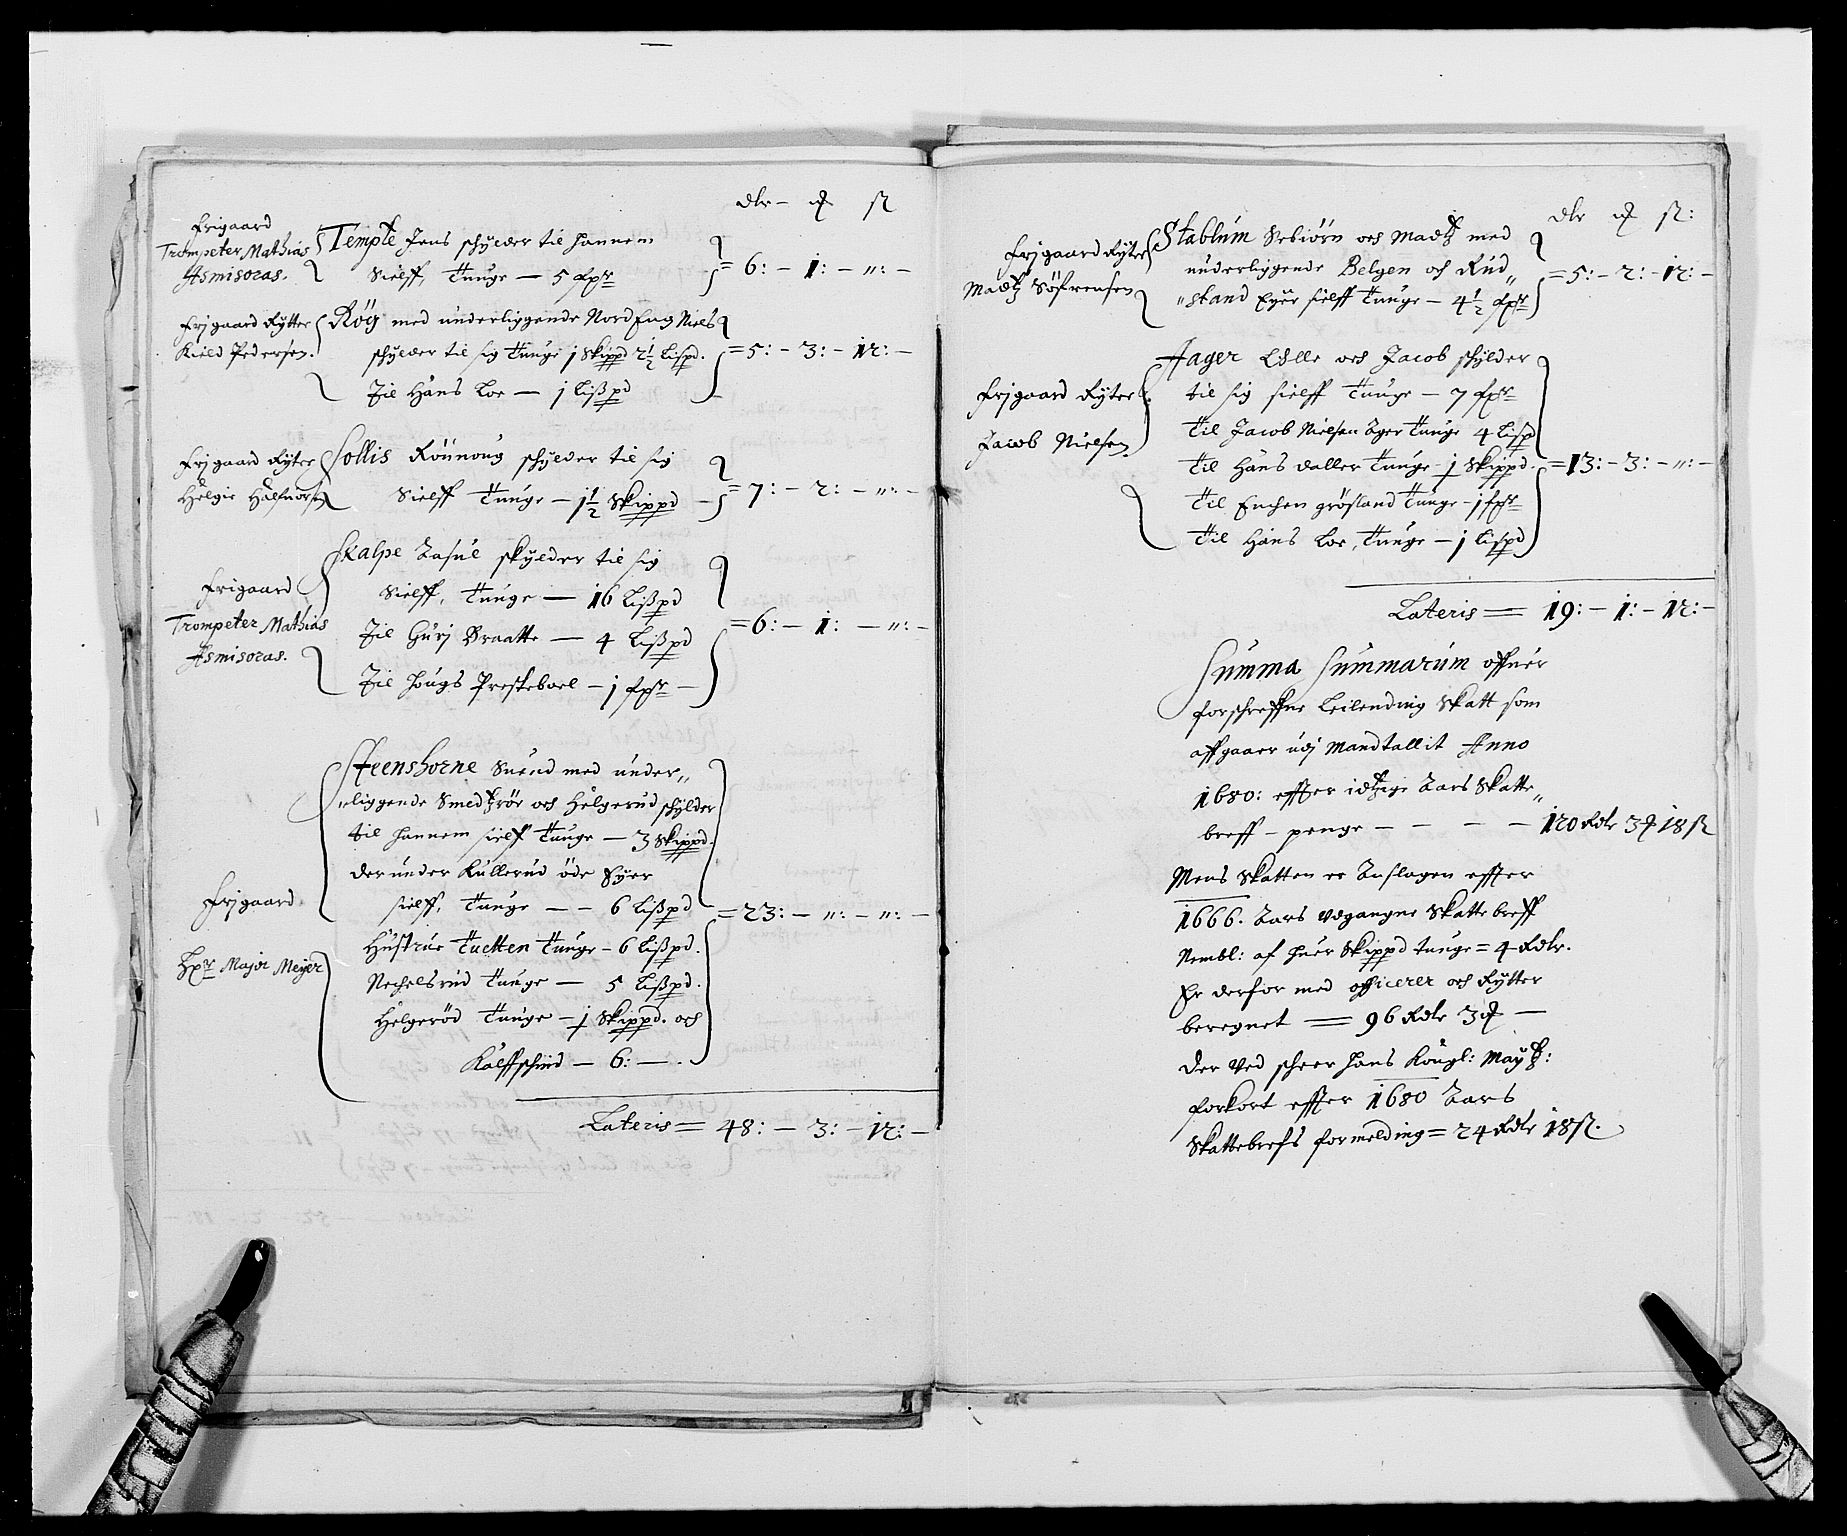 dlr – ort ß
Frigaard
Trompeter Mathias
Asmisoras.
Temple Jens schylder til hannem
Sielff, Tunge — 5 fpr
= 6: – 1: – „: –
Frjgaard Rytter
Kield Pedersen.
Rög med underliggende Nord Eng Niels
schylder til sig Tunge j Skippd 2½ Lispd.
Til Hans Loe — j Lißpd
= 5: – 3: – 12: –
Frjgaard Ryter
Helgie Halfuors
Sollis Rönnoug schylder til sig
Sielff Tunge — j½ Skippd –
= 7: – 2: – „: –
Frigaard
Trompeter Mathias
Asmisoras.
Skalpe Aasul skylder til sig
Sielff, Tunge — 16 Lißpd
Til Gurj Braatte — 4 Lißpd
Til Hougs Presteboel – j fpr –
= 6: – 1: – „: –
Frjgaard
Hr Major Meyer
Steenshorne Suend med under„
„liggende Smedtzröe och Helgerud schylder
til hannem sielff Tunge — 3 Skippd.
der under Kullerud öde Eyer
sielff, Tunge — – 6 Lißpd
Hustrue Tuetten Tunge – 6 Lißpd.
Nechelsrud Tunge — 5 Lißpd.
Helgeröd Tunge – j Skippd. och
Kalffschind — 6: — .
= 23: – „: – „: –
Lateris = 48: – 3: – 12: –
dlr ort ß:
Frjgaard Ryter
Madtz Söfrensen
Stablum Aebiörn och Madtz med
underliggende Belgen och Rud„
„stand Eyer sielff Tunge – 4½ fpr
= 5: – 2: – 12: –
Frjgaard Ryter
Jacob Nielsen
Ager Colle och Jacob schylder
til sig sielff Tunge — 7 fpr
Til Jacob Nielsen Ager Tunge 4 Lispd
Til Hans Daller Tunge – j Skippd.
Til Enchen Grösland Tunge – j fpr
Til Hans Loe, Tunge – j Lispd
= 13: – 3: – „: –
Lateris = 19: – 1: – 12: –
Summa Summarum offuer
forschreffne Leilending Skatt som
affgaaer udj Mandtallit Anno
1680: effter idtzige Aars Skatte„
breff – penge – – – – 120 Rdlr 3 ort 18 ß
Mens Skatten er Anslagen effter
1666. Aars udgangne Skatte breff
Nembl: af huer Skippd tunge = 4 Rdlr.
Er derfor med officerer och Rytter
beregnet = 96 Rdlr 3 ort –
Der ved scheer Hans Kongl: Maytz:
forkort effter 1680 Aars
Skattebrefs formelding = 24 Rdlr 18 ß.